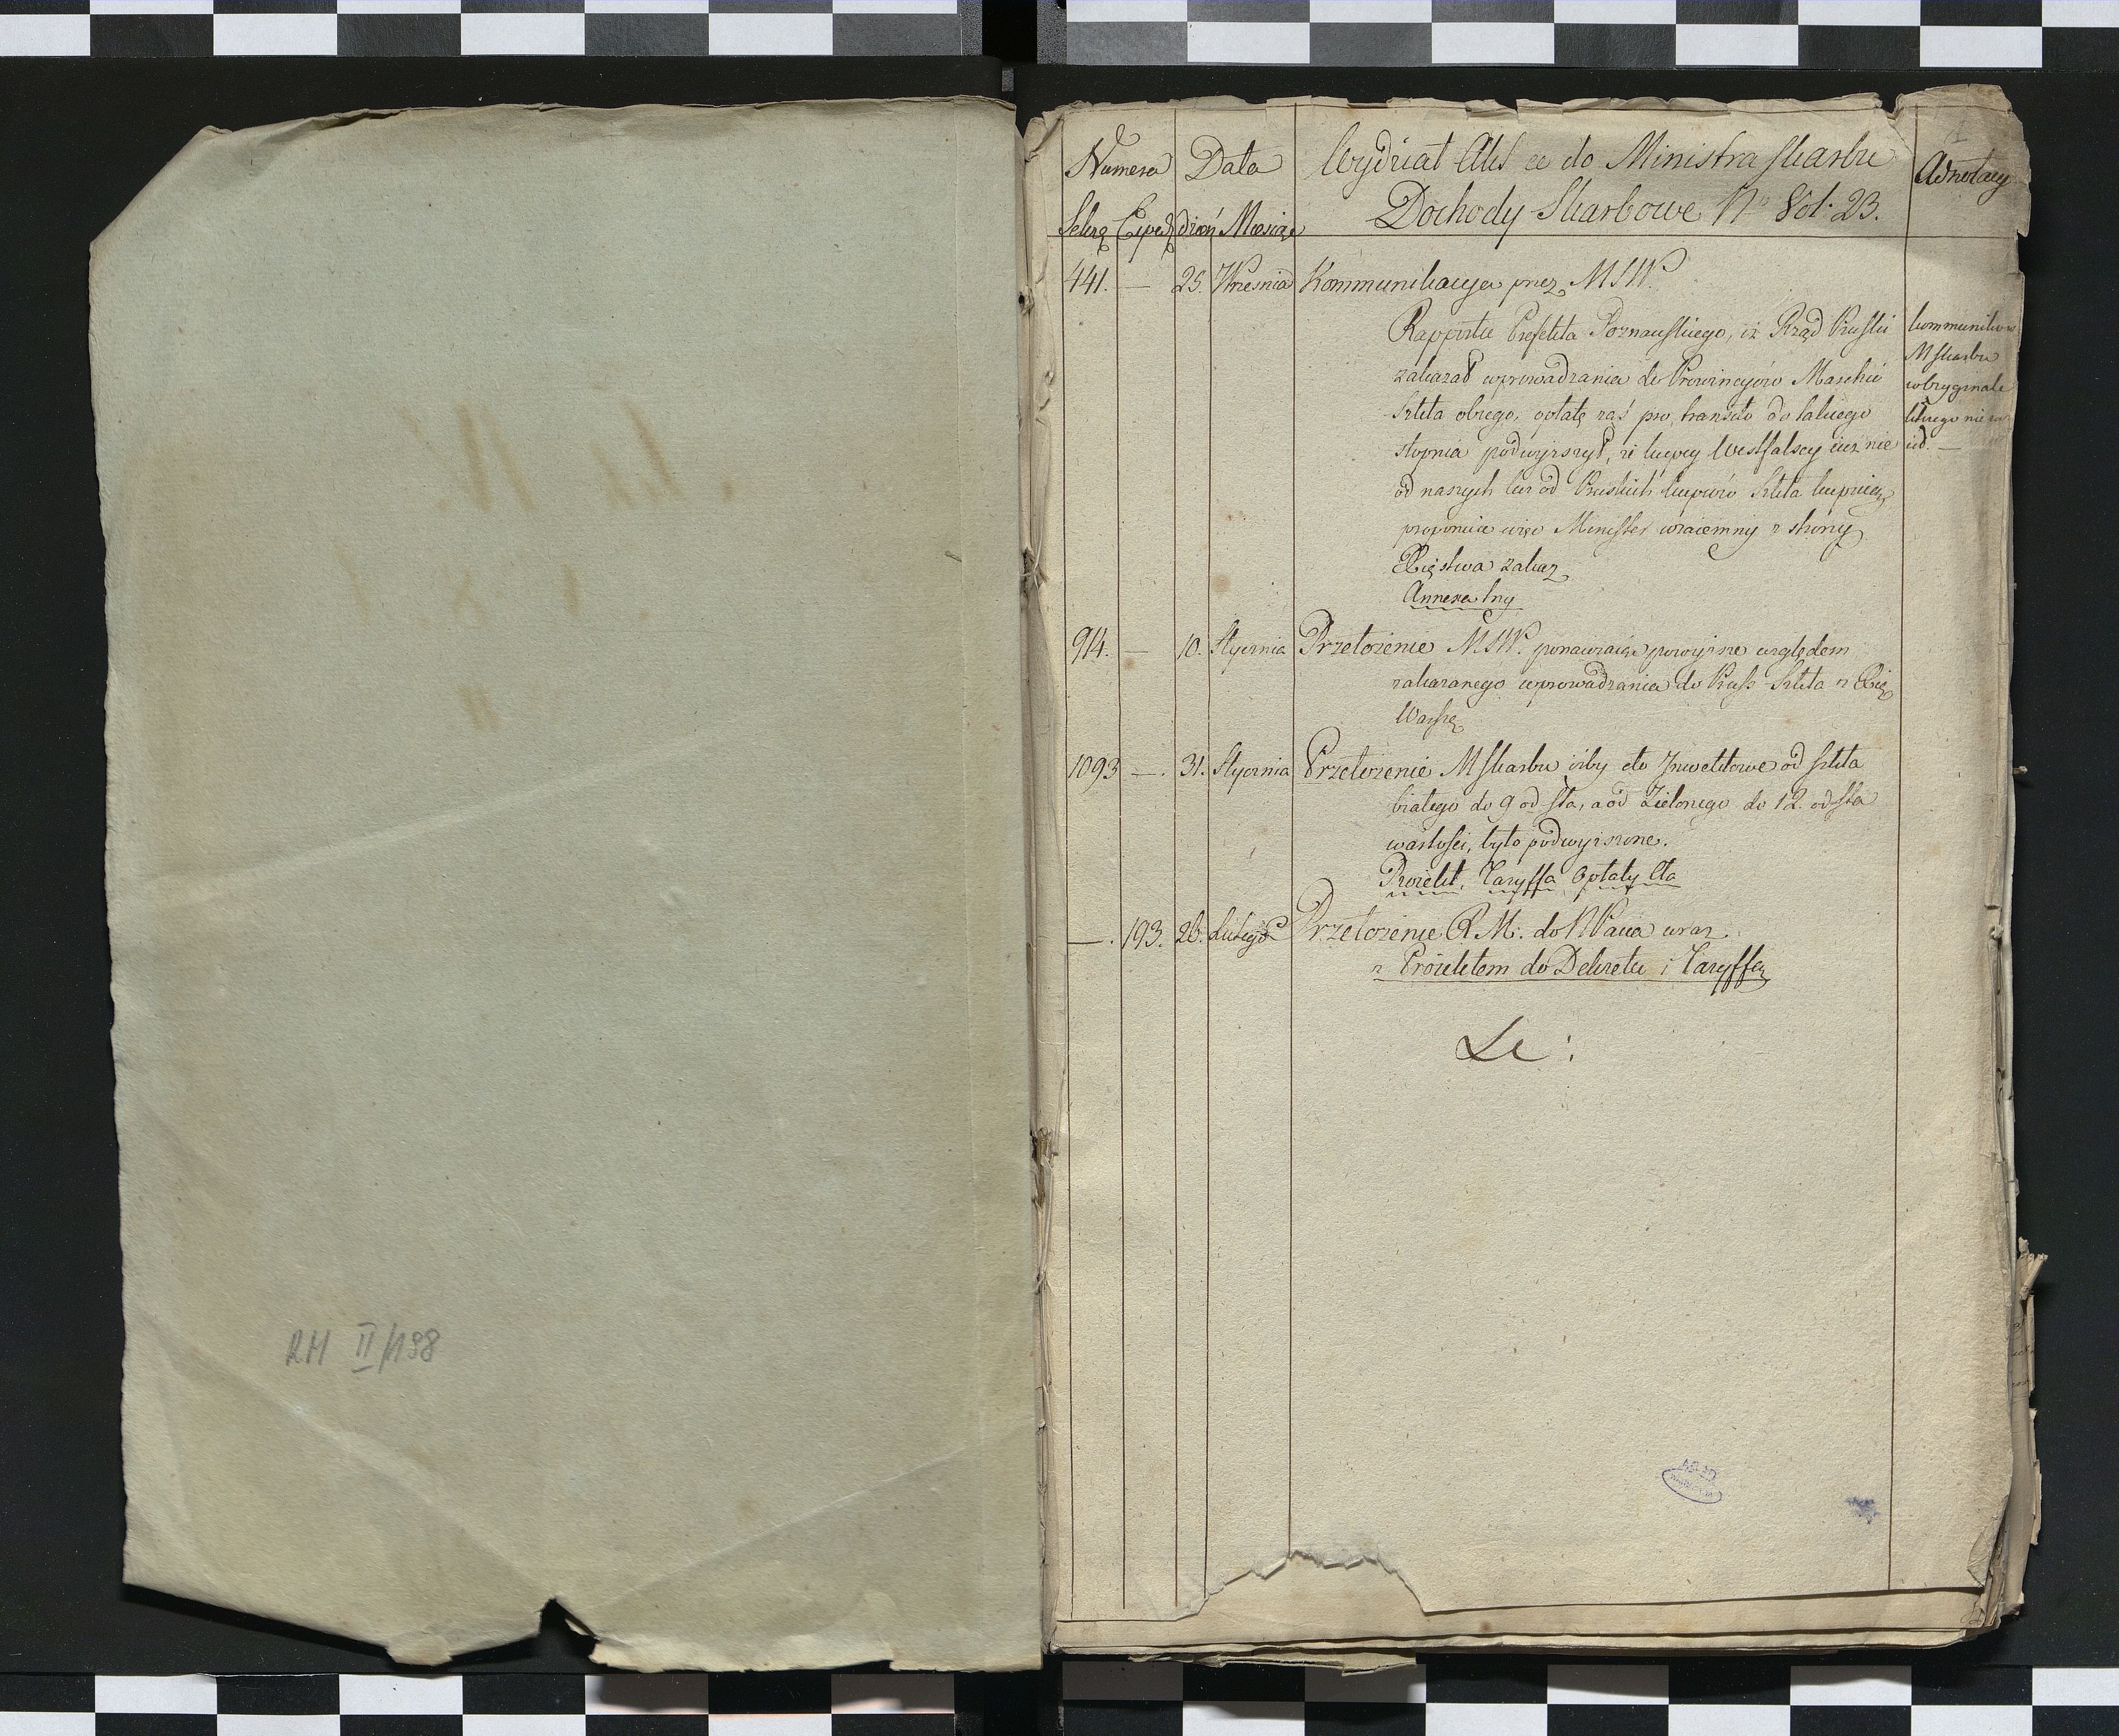 RM II/138
1
Numera Data Wydział Akt ce do Ministra Skarbu Adnotacy
Sekrę Exped dzień Miesiąc Dochody Skarbowe No Vol: 23.
441. — 25. Wrzesnia Kommunikacya przez MSW.
Rapportu Prefekta Poznanskiego, iż Rząd Pruski
zakazał wprowadzania do Prowincyów Marchii
Szkła obcego, opłatę zaś pro transito do takiego
stopnia podwyższył, iż kupcy Westfalscy iuż nie
od naszych lecz od Pruskich kupców Szkła kupuią,
proponuie więc Minister wzaiemny z strony
Xięstwa zakaz
Annexa Iny
kommunikow
M Skarbu
w oryginale
którego nie
914. — 10. Stycznia Przełożenie MSW. ponawiaiące powyższe względem
zakazanego wprowadzania do Pruss Szkła z Xię
Warszę
1093 — . 31. Stycznia Przełożenie M Skarbu iżby cło Inwektowe od szkła
białego do 9 od sta, a od zielonego do 12. od sta
wartości, było podwyższone.
Proiekt, Taryffa Opłaty Cła
— . 193. 26. Lutego Przełożenie R M: do NPana wraz
z Proiektem do Dekretu i Taryffą
Le: